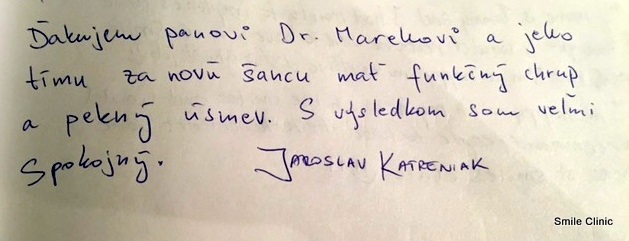 Ďakujem panovi Dr. Marekovi a jeho
tímu za novú šancu mať funkčný chrup
a pekný úsmev. S výsledkom som veľmi
spokojný. JAROSLAV KATRENIAK
Smile Clinic